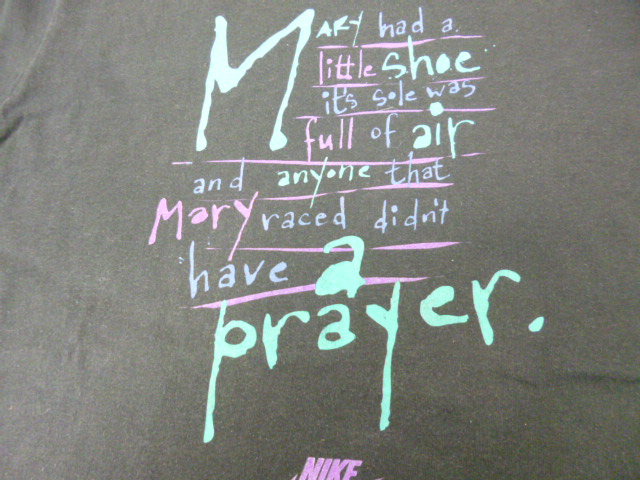 MARY had a
little shoe
it's sole was
full of air
and anyone that
Mary raced didn't
have a
prayer.
NIKE